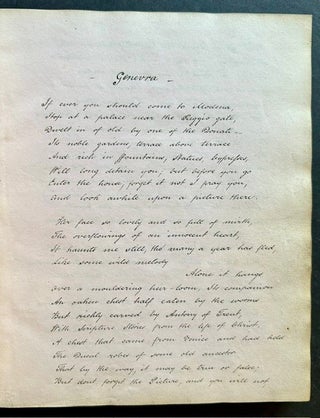 - Genevra -
If ever you should come to Modena,
Stop at a palace near the Reggio gate,
Dwelt in of old by one of the Donati -
Its noble gardens, terrace above terrace
And rich in fountains, statues, cypresses,
Will long detain you; but before you go
Enter the house, forget it not I pray you,
And look awhile upon a picture there.
Her face so lovely and so full of mirth,
The overflowings of an innocent heart,
It haunts me still, tho' many a year has fled,
Like some wild melody
Alone it hangs
Over a mouldering heir-loom, its companion
An oaken chest half eaten by the worms
But richly carved by Antony of Trent,
With Scripture Stories from the life of Christ,
A chest that came from Venice and had held
The Ducal robes of some old ancestor
That by the way, it may be true or false;
But dont forget the Picture, and you will not